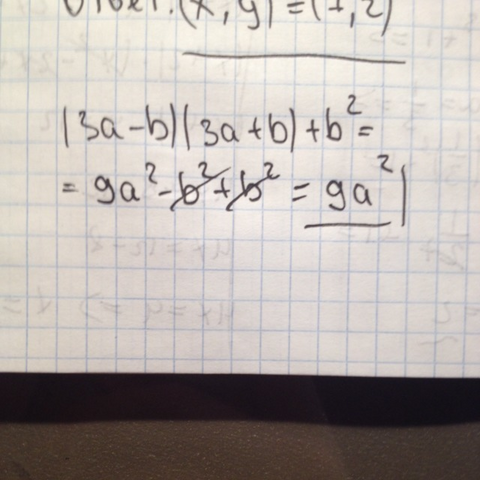 Ответ: (x, y) = (1, 2)
(3a-b)(3a+b)+b²=
= 9a²-b²+b² = 9a²